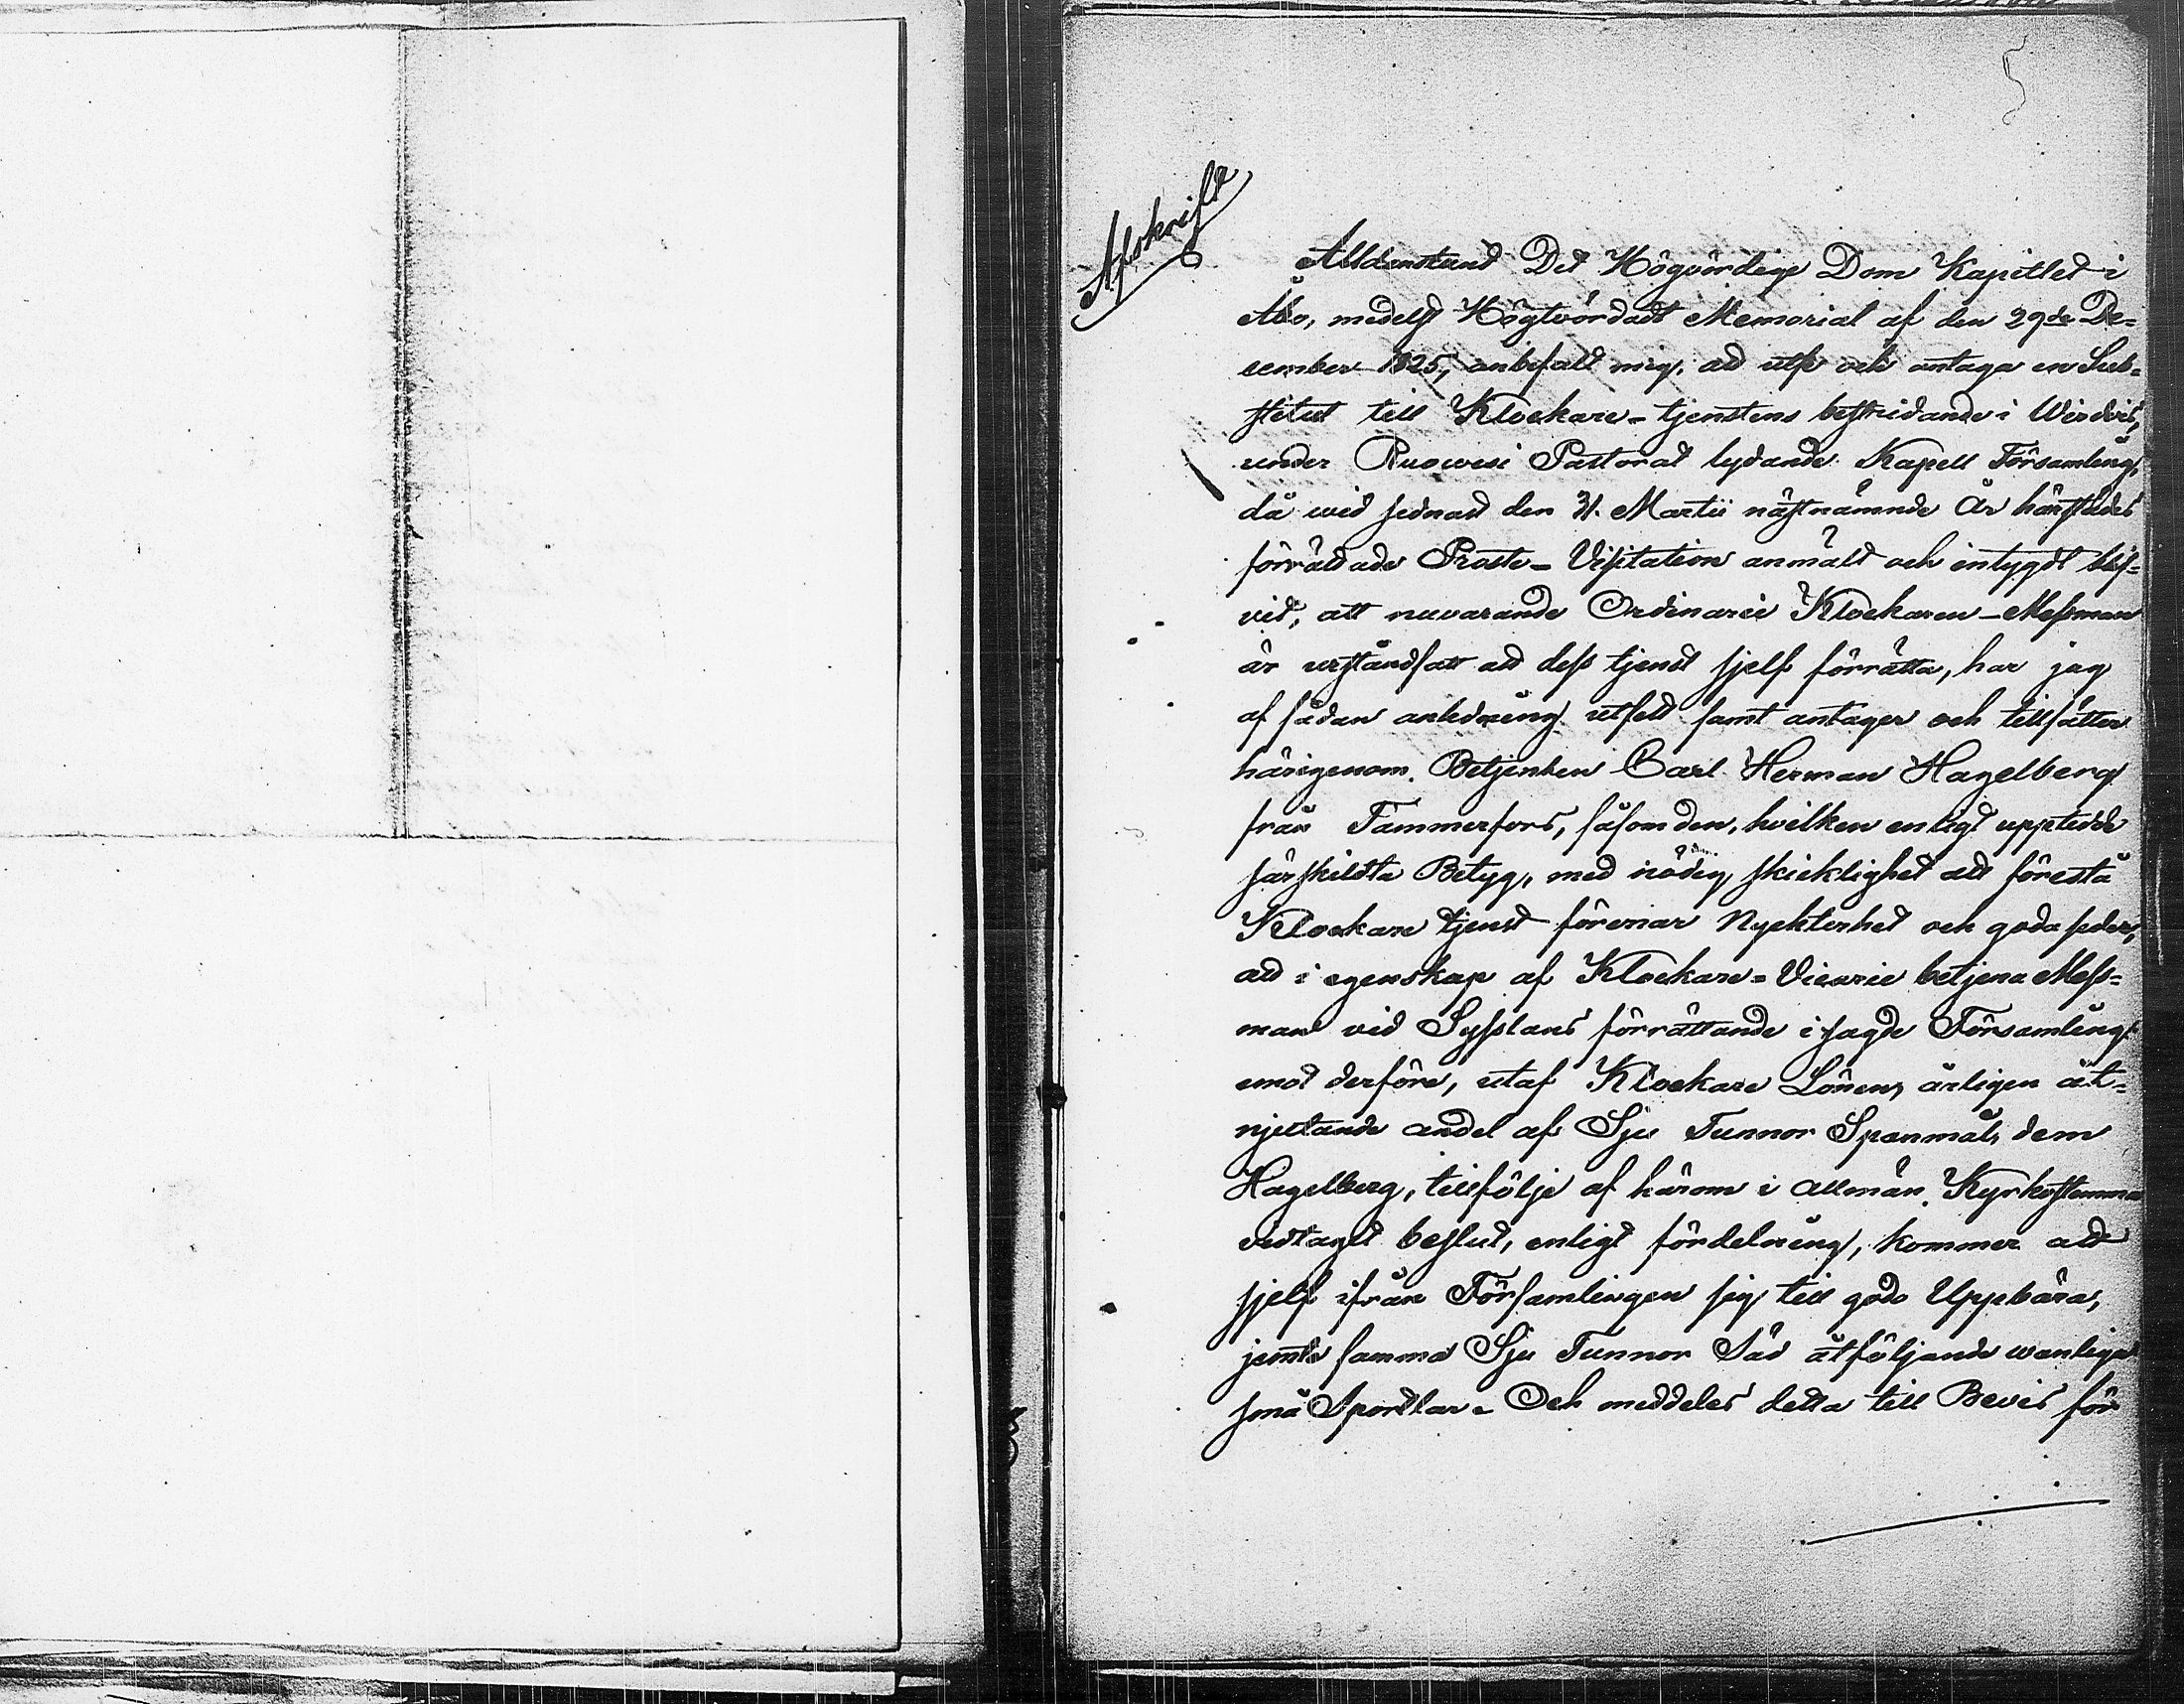 Afskrift
Alldenstund Det Högvördige Dom Kapitlet i
Åbo, medelst Högtvördadt Memorial af den 29de De=
cember 1825, anbefalt mig, att utse och antaga en Sub=
stitut till Klockare-tjenstens bestridande i Wirdois,
under Ruowesi Pastorat lydande Kapell Församling,
då wid sednast den 31. Martii nästnämnde År härstädes
förrättade Proste-Visitation anmält och intygdt blif=
vit, att nuvarande Ordinarie Klockaren Messman
är urståndsatt att dess tjenst sjelf förrätta, har jag
af sådan anledning utsedt samt antager och tillsätter
härigenom Betjenten Carl Herman Hagelberg
från Tammerfors, såsom den, hvilken enligt upptedde
särskildta Betyg, med nödig skicklighet att förestå
Klockare tjenst förenar Nyckterhet och goda seder,
att i egenskap af Klockare=Vicarie betjena Mess=
man vid Sysslans förrättande i sagde Församling
emot derföre, utaf Klockare Lönen, årligen åt=
njutande andel af Sju Tunnor Spanmål, dem
Hagelberg, tillfölje af härom i allmän Kyrkostemma
vidtaget beslut, enligt fördelning, kommer att
sjelf ifrån Församlingen sig till godo Uppbära,
jemte samma Sju Tunnor Säd åtföljande wanliga
små Sportlar. Och meddeles detta till Bevis för